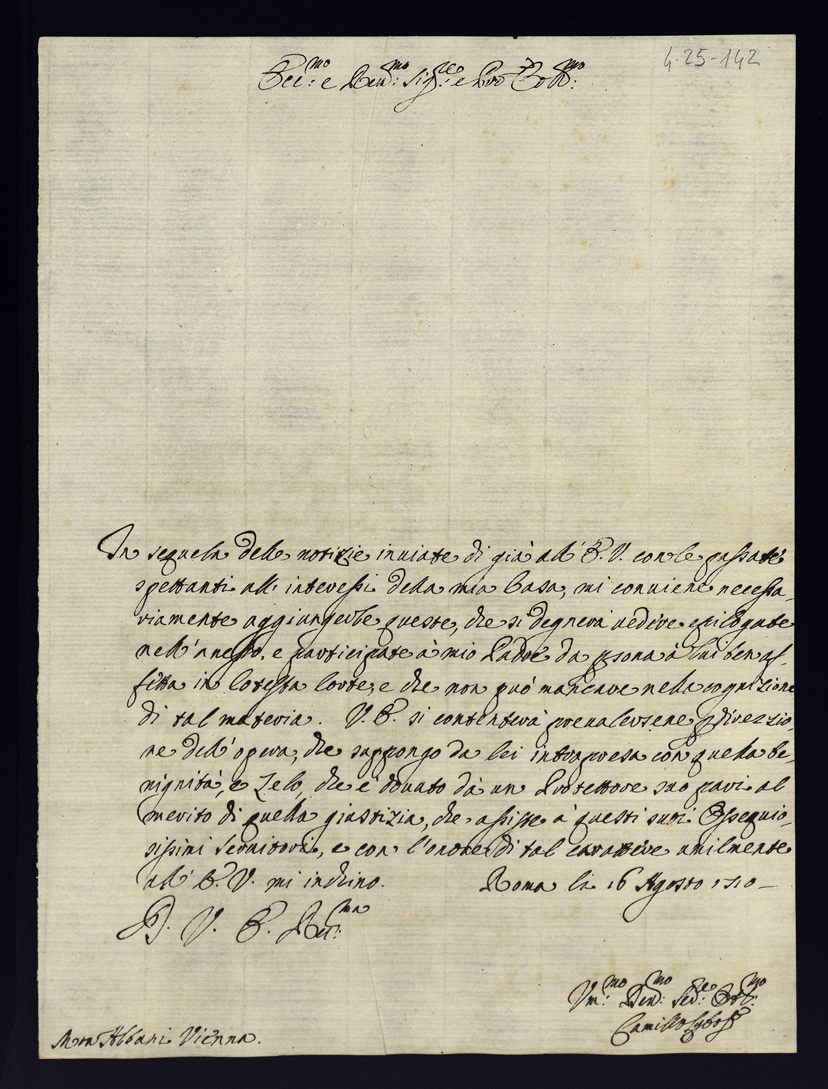 4-25-142
Ecc:mo e Reu:mo Sig:re e Pro Col:mo
In sequela delle notizie inuiate di già all' E. V. con le passate
spettanti alli interessi della mia Casa, mi conuiene necessa-
riamente aggiungerle queste, che si degnerà uedere epilogate
nell' annesso, e participate à mio Padre da psona à lui ben af-
fetta in cotesta Corte, e che non può mancare nella cognizione
di tal materia. V. E. si contenterà preualersene p direzzio-
ne dell' opera, che suppongo da lei intrapresa con quella be-
nignità, e Zelo, che è douuto da un Protettore suo pari al
merito di quella giustizia, che assiste à questi suoi Ossequio-
sissimi Seruitori, e con l'onore di tal carattere umilmente
all' E. V. mi inchino. Roma li 16 Agosto 1710
D. V. E. Reu:ma
Vm:mo Deu:mo Ser:e Obl:mo
Camillo Cybo
Mon Albani Vienna.